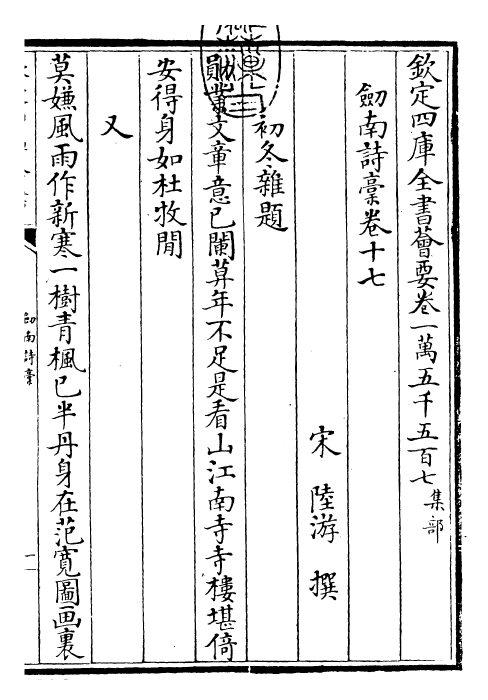 欽定四庫全書薈要卷一萬五千五百七 集部
劒南詩藁卷十七
宋 陸游 撰
初冬雜題
勲業文章意已闌莫年不足是看山江南寺寺樓堪倚
安得身如杜牧閒
又
莫嫌風雨作新寒一樹青楓已半丹身在范寛圖画裏
劒南詩藁
一